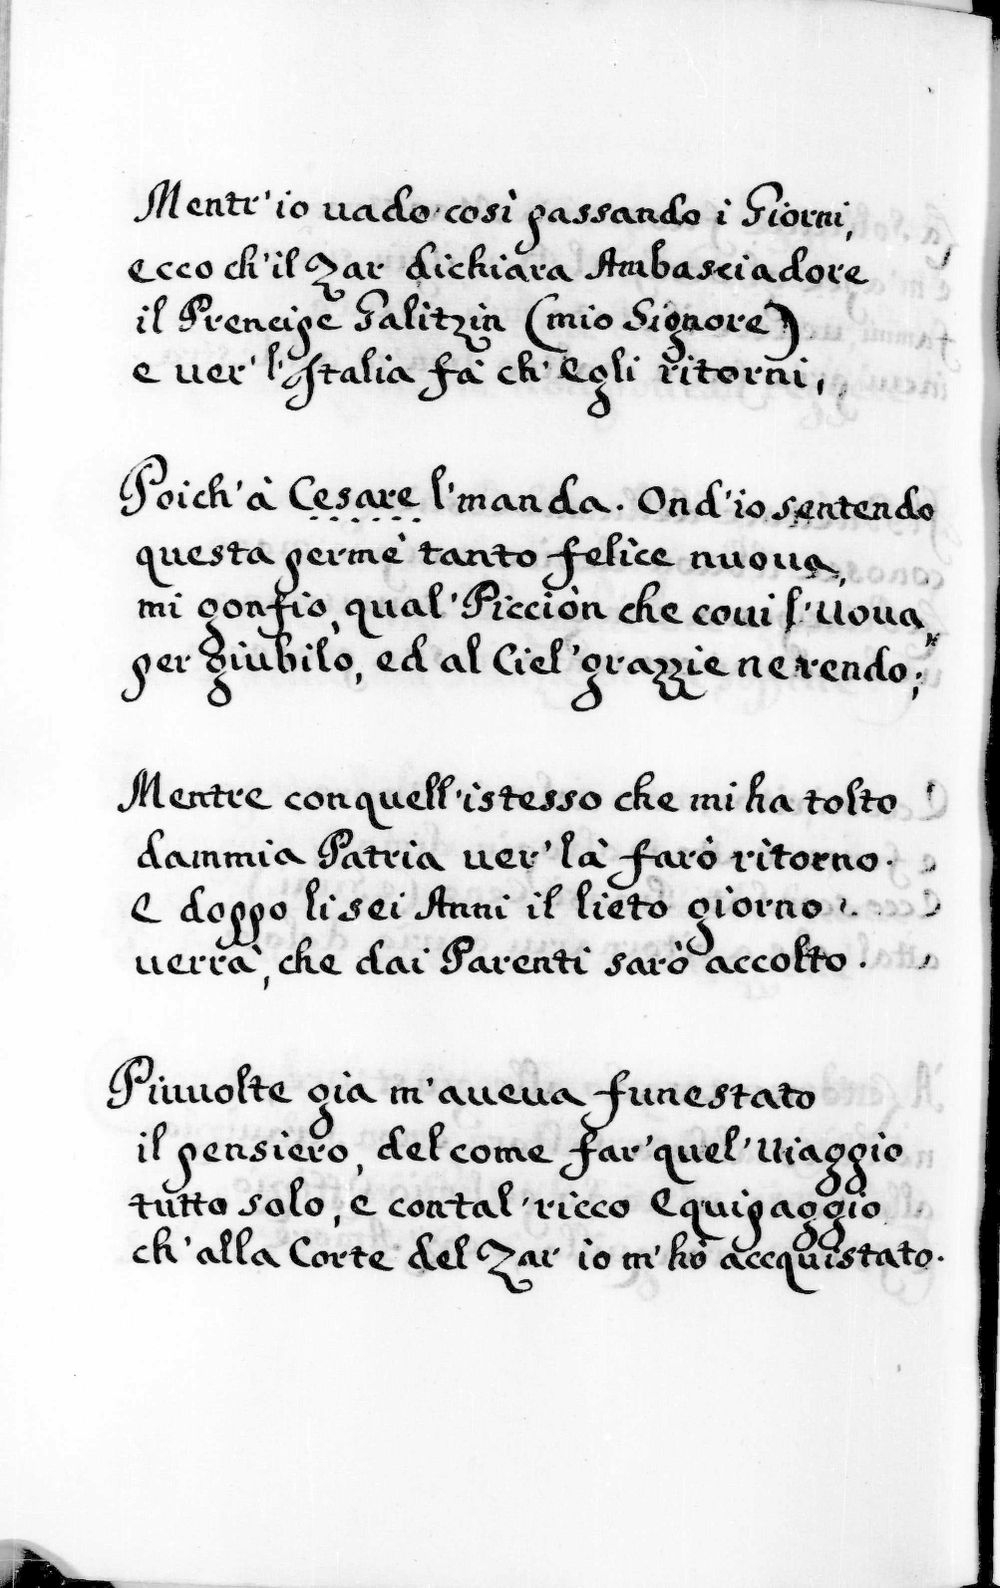 Mentr'io uado così passando i Giorni,
ecco ch'il Zar dichiara Ambasciadore
il Prencipe Galitzin (mio Signore)
e uer' l'Italia fà ch'Egli ritorni,
Poich'à Cesare l'manda. Ond'io sentendo
questa per mè tanto felice nuoua,
mi gonfio, qual' Piccion che coui l'Uoua,
per giubilo, ed al Ciel' grazzie ne rendo;
Mentre con quell'istesso che mi ha tolto
dammia Patria uer' là farò ritorno.
E doppo li sei Anni il lieto giorno
uerrà, che dai Parenti sarò accolto.
Piuuolte già m'aueua funestato
il pensiero, del come far' quel' Uiaggio
tutto solo, e con tal' ricco Equipaggio
ch'alla Corte del Zar io m'hò accquistato.